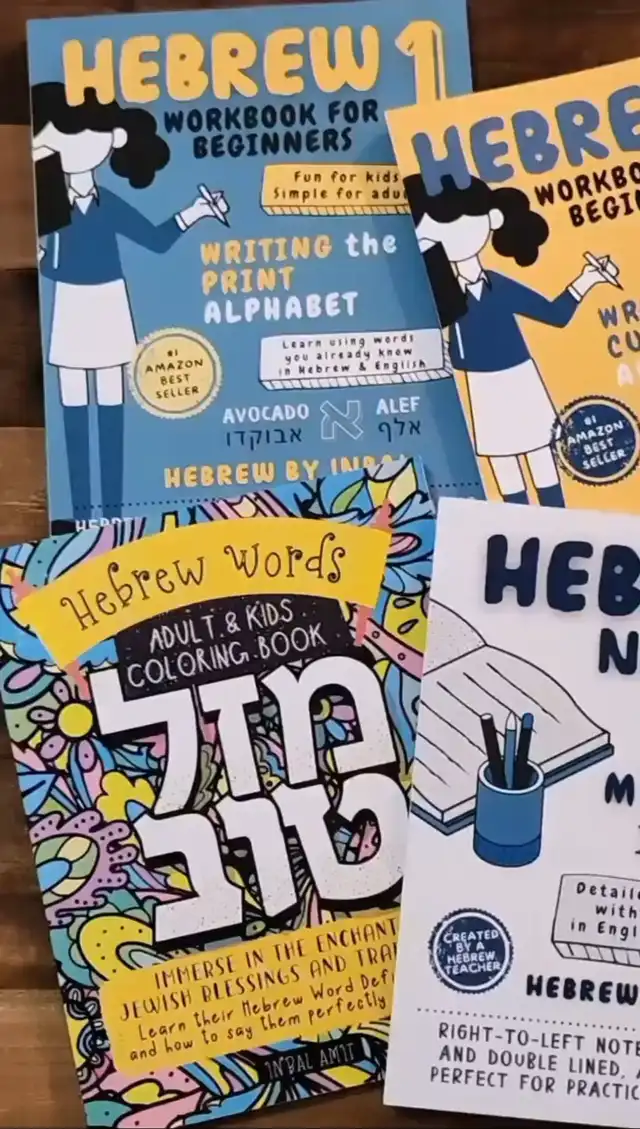 HEBREW 1
WORKBOOK FOR
BEGINNERS
Fun for kids
Simple for
WRITING the
PRINT
ALPHABET
#1
AMAZON
BEST
SELLER
Learn using words
you already know
in Hebrew & English
AVOCADO א ALEF
אבוקדו אלף
HEBREW BY
HEBRE
WORKBO
BEGI
WR
CU
A
#1
AMAZON
BEST
SELLER
Hebrew Words
ADULT & KIDS
COLORING BOOK
מזל
טוב
IMMERSE IN THE ENCHANT
JEWISH BLESSINGS AND
Learn their Hebrew Word Def
and how to say them perfectly
INBAL AMIT
HEB
N
M
Detaile
with
in Engl
CREATED
BY A
HEBREW
TEACHER
HEBREW
RIGHT-TO-LEFT NOTE
AND DOUBLE LINED,
PERFECT FOR PRACTIC